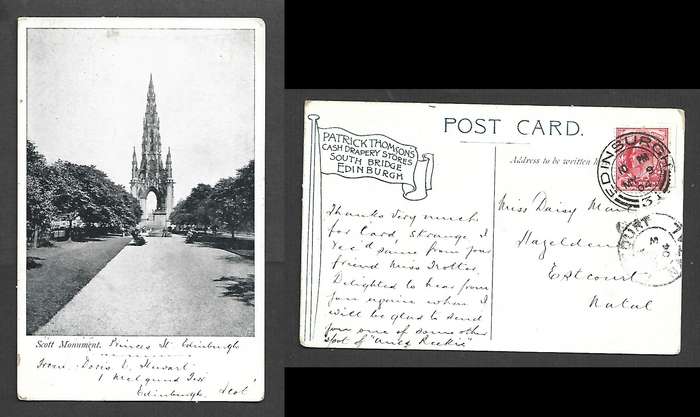 Scott Monument. Princes St Edinburgh
From Doris E. Stewart
1 Melgund Ter
Edinburgh Scot
POST CARD.
PATRICK THOMSON'S
CASH DRAPERY STORES
SOUTH BRIDGE
EDINBURGH
Address to be written
Thanks very much
for Card, strange I
rec'd same from your
friend Miss Trotter.
Delighted to hear from
you again when I
will be glad to send
you one of some other
spot of "Auld Reekie"
Miss Daisy
Hazeldene
Estcourt
Natal
EDINBURGH